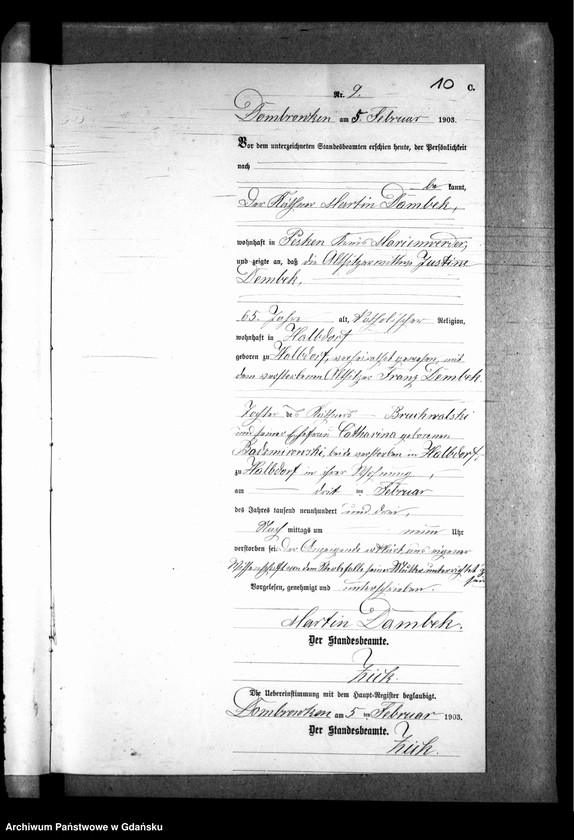 10 C.
Nr. 9.
Dombrowken am 5. Februar 1903.
Vor dem unterzeichneten Standesbeamten erschien heute, der Persönlichkeit
nach
be kannt,
Der Käthner Martin Dambek,
wohnhaft in Pesken Kreis Marienwerder,
und zeigte an, daß die Altsitzerwittwe Justine
Dembek,
65 Jahre alt, katholischer Religion,
wohnhaft in Halbdorf
geboren zu Halbdorf, verheirathet gewesen mit
dem verstorbenen Altsitzer Franz Dembek.
Tochter des Käthners Bruchwalski
und seiner Ehefrau Catharina geborenen
beide verstorben in Halbdorf,
zu Halbdorf in ihrer Wohnung,
am drit ten Februar
des Jahres tausend neunhundert und drei,
Nach mittags um neun Uhr
verstorben sei. Der Anzeigende erklärt aus eigener
Wissenschaft von dem Sterbefalle seiner Mutter unterrichtet zu
sein
Vorgelesen, genehmigt und unterschrieben.
Martin Dambek.
Der Standesbeamte.
Die Uebereinstimmung mit dem Haupt-Register beglaubigt.
Dombrowken am 5 ten Februar 1903.
Der Standesbeamte.
Archiwum Państwowe w Gdańsku